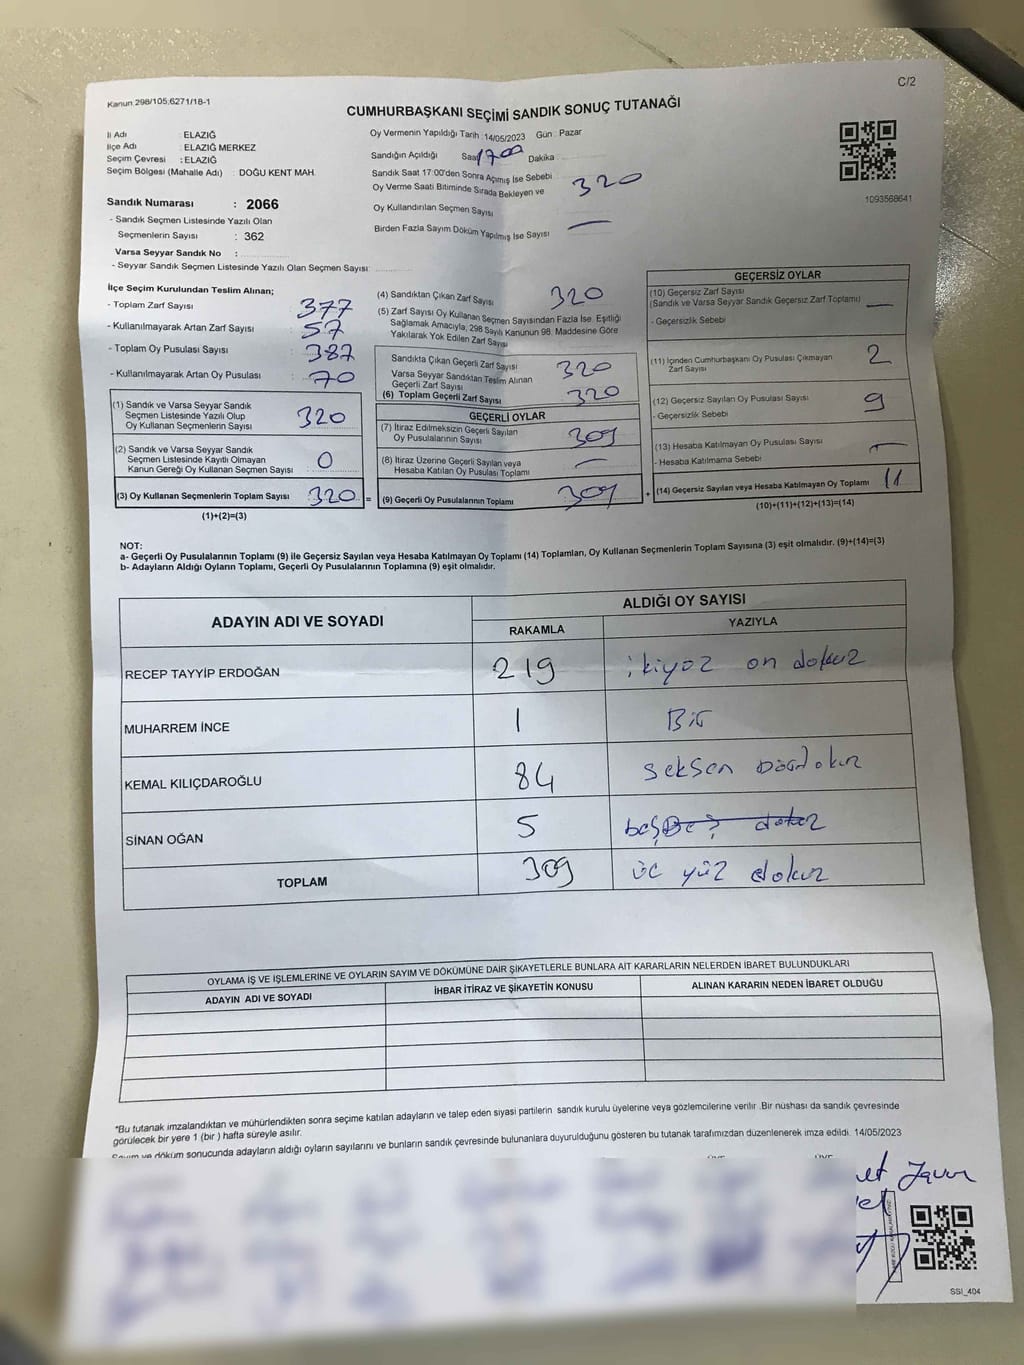 Kanun 298/105:6271/18-1
C/2
CUMHURBAŞKANI SEÇİMİ SANDIK SONUÇ TUTANAĞI
İl Adı : ELAZIĞ
İlçe Adı : ELAZIĞ MERKEZ
Seçim Çevresi : ELAZIĞ
Seçim Bölgesi (Mahalle Adı) : DOĞU KENT MAH.
Sandık Numarası : 2066
- Sandık Seçmen Listesinde Yazılı Olan
Seçmenlerin Sayısı : 362
Varsa Seyyar Sandık No :
- Seyyar Sandık Seçmen Listesinde Yazılı Olan Seçmen Sayısı:
Oy Vermenin Yapıldığı Tarih : 14/05/2023 Gün : Pazar
Sandığın Açıldığı Saat 17 00 Dakika
Sandık Saat 17:00'den Sonra Açımış İse Sebebi
Oy Verme Saati Bitiminde Sırada Bekleyen ve 320
Oy Kullandırılan Seçmen Sayısı
Birden Fazla Sayım Döküm Yapılmış İse Sayısı —
1093568641
İlçe Seçim Kurulundan Teslim Alınan;
- Toplam Zarf Sayısı : 377
- Kullanılmayarak Artan Zarf Sayısı : 57
- Toplam Oy Pusulası Sayısı : 387
- Kullanılmayarak Artan Oy Pusulası : 70
(1) Sandık ve Varsa Seyyar Sandık
Seçmen Listesinde Yazılı Olup 320
Oy Kullanan Seçmenlerin Sayısı
(2) Sandık ve Varsa Seyyar Sandık
Seçmen Listesinde Kayıtlı Olmayan 0
Kanun Gereği Oy Kullanan Seçmen Sayısı
(3) Oy Kullanan Seçmenlerin Toplam Sayısı 320 =
(1)+(2)=(3)
(4) Sandıktan Çıkan Zarf Sayısı 320
(5) Zarf Sayısı Oy Kullanan Seçmen Sayısından Fazla İse, Eşitliği
Sağlamak Amacıyla, 298 Sayılı Kanunun 98. Maddesine Göre
Yakılarak Yok Edilen Zarf Sayısı
Sandıkta Çıkan Geçerli Zarf Sayısı 320
Varsa Seyyar Sandıktan Teslim Alınan
Geçerli Zarf Sayısı
(6) Toplam Geçerli Zarf Sayısı 320
GEÇERLİ OYLAR
(7) İtiraz Edilmeksizin Geçerli Sayılan
Oy Pusulalarının Sayısı 309
(8) İtiraz Üzerine Geçerli Sayılan veya
Hesaba Katılan Oy Pusulası Toplamı —
(9) Geçerli Oy Pusulalarının Toplamı 309 +
GEÇERSİZ OYLAR
(10) Geçersiz Zarf Sayısı
(Sandık ve Varsa Seyyar Sandık Geçersiz Zarf Toplamı) —
- Geçersizlik Sebebi
(11) İçinden Cumhurbaşkanı Oy Pusulası Çıkmayan 2
Zarf Sayısı
(12) Geçersiz Sayılan Oy Pusulası Sayısı 9
- Geçersizlik Sebebi
(13) Hesaba Katılmayan Oy Pusulası Sayısı —
- Hesaba Katılmama Sebebi
(14) Geçersiz Sayılan veya Hesaba Katılmayan Oy Toplamı 11
(10)+(11)+(12)+(13)=(14)
NOT:
a- Geçerli Oy Pusulalarının Toplamı (9) ile Geçersiz Sayılan veya Hesaba Katılmayan Oy Toplamı (14) Toplamları, Oy Kullanan Seçmenlerin Toplam Sayısına (3) eşit olmalıdır. (9)+(14)=(3)
b- Adayların Aldığı Oyların Toplamı, Geçerli Oy Pusulalarının Toplamına (9) eşit olmalıdır.
ADAYIN ADI VE SOYADI
ALDIĞI OY SAYISI
RAKAMLA YAZIYLA
RECEP TAYYİP ERDOĞAN 219 ikiyüz on dokuz
MUHARREM İNCE 1 Bir
KEMAL KILIÇDAROĞLU 84 seksen
SİNAN OĞAN 5 beş
TOPLAM 309 üç yüz dokuz
OYLAMA İŞ VE İŞLEMLERİNE VE OYLARIN SAYIM VE DÖKÜMÜNE DAİR ŞİKAYETLERLE BUNLARA AİT KARARLARIN NELERDEN İBARET BULUNDUKLARI
ADAYIN ADI VE SOYADI İHBAR İTİRAZ VE ŞİKAYETİN KONUSU ALINAN KARARIN NEDEN İBARET OLDUĞU
*Bu tutanak imzalandıktan ve mühürlendikten sonra seçime katılan adayların ve talep eden siyasi partilerin sandık kurulu üyelerine veya gözlemcilerine verilir .Bir nüshası da sandık çevresinde
görülecek bir yere 1 (bir ) hafta süreyle asılır.
Sayım ve döküm sonucunda adayların aldığı oyların sayılarını ve bunların sandık çevresinde bulunanlara duyurulduğunu gösteren bu tutanak tarafımızdan düzenlenerek imza edildi. 14/05/2023
SSİ_404